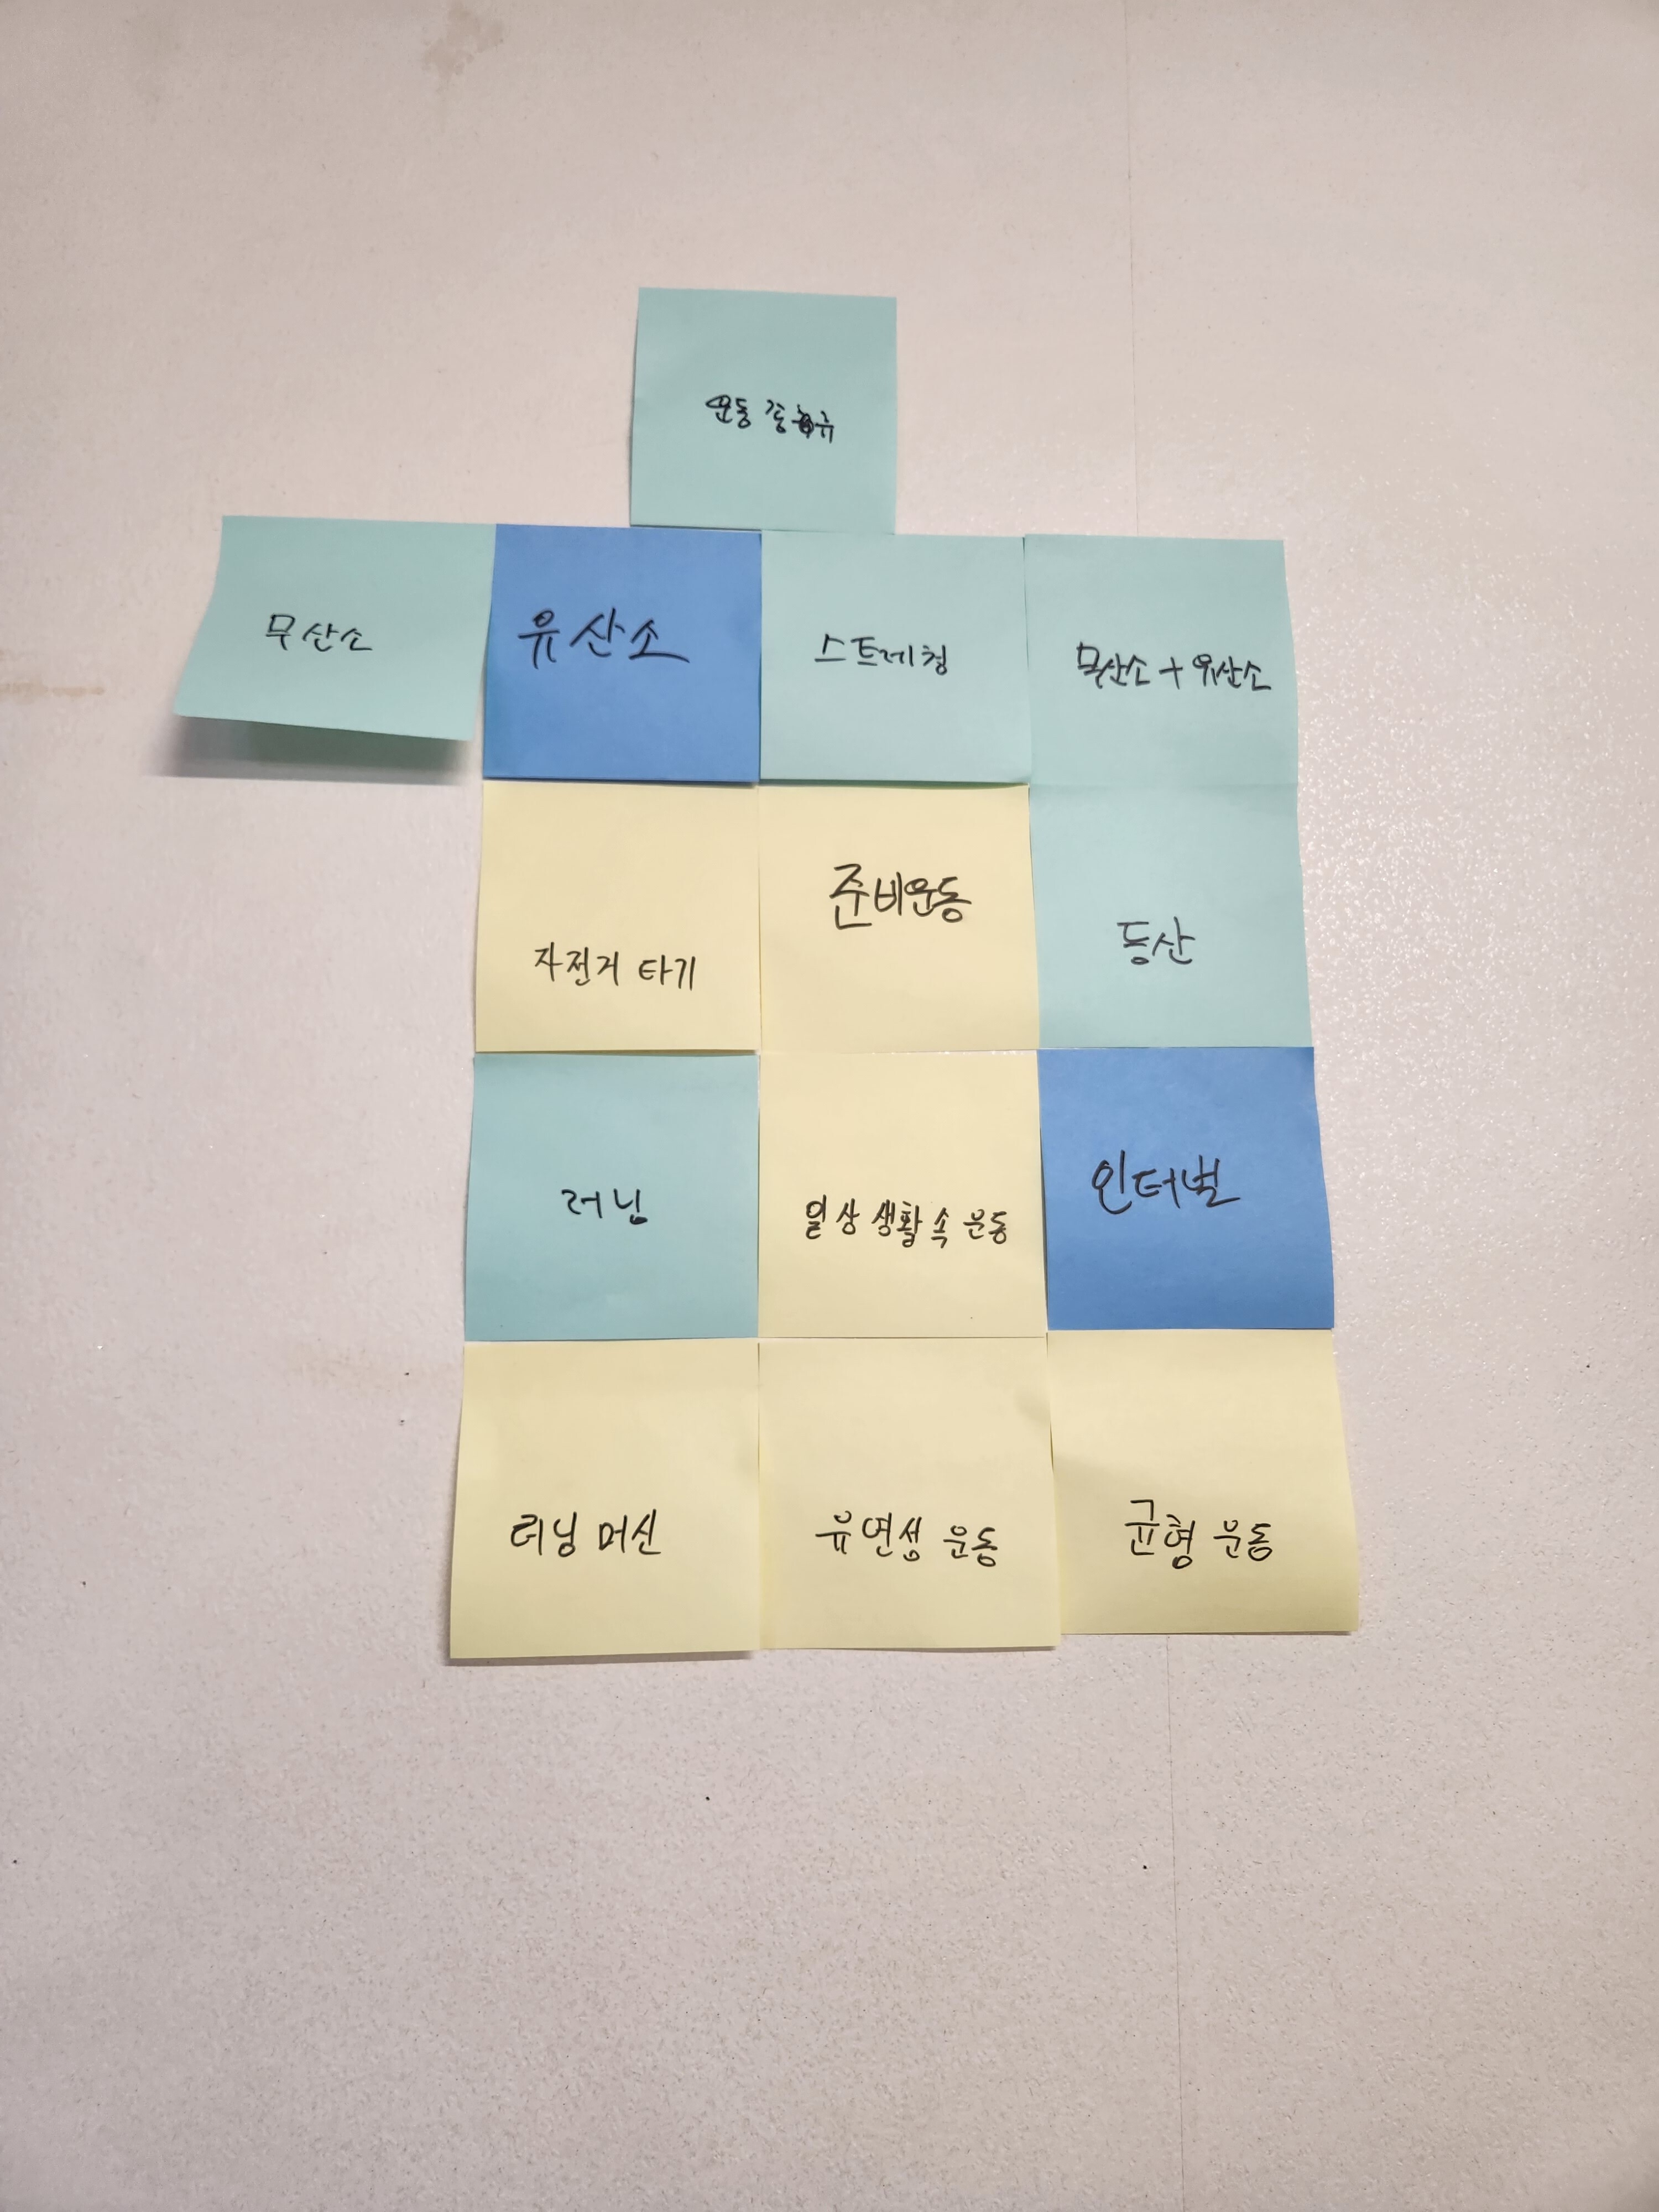 운동 종류
무산소
유산소
스트레칭
무산소 + 유산소
자전거 타기
준비운동
등산
러닝
일상 생활 속 운동
인터벌
러닝 머신
유연성 운동
균형 운동